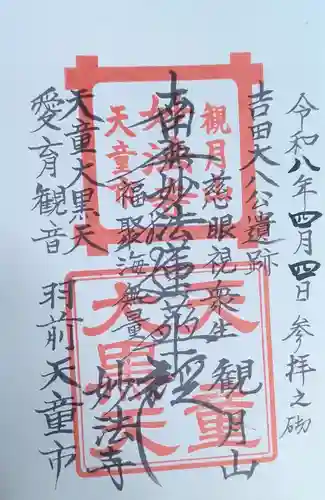 令和八年四月四日 参拝之砌
吉田大八公遺跡
慈眼視衆生
観月山
南無妙法蓮華経
福聚海無量
妙法寺
天童大黒天
愛育観音
羽前天童市
観月
天童
天童
大黒天